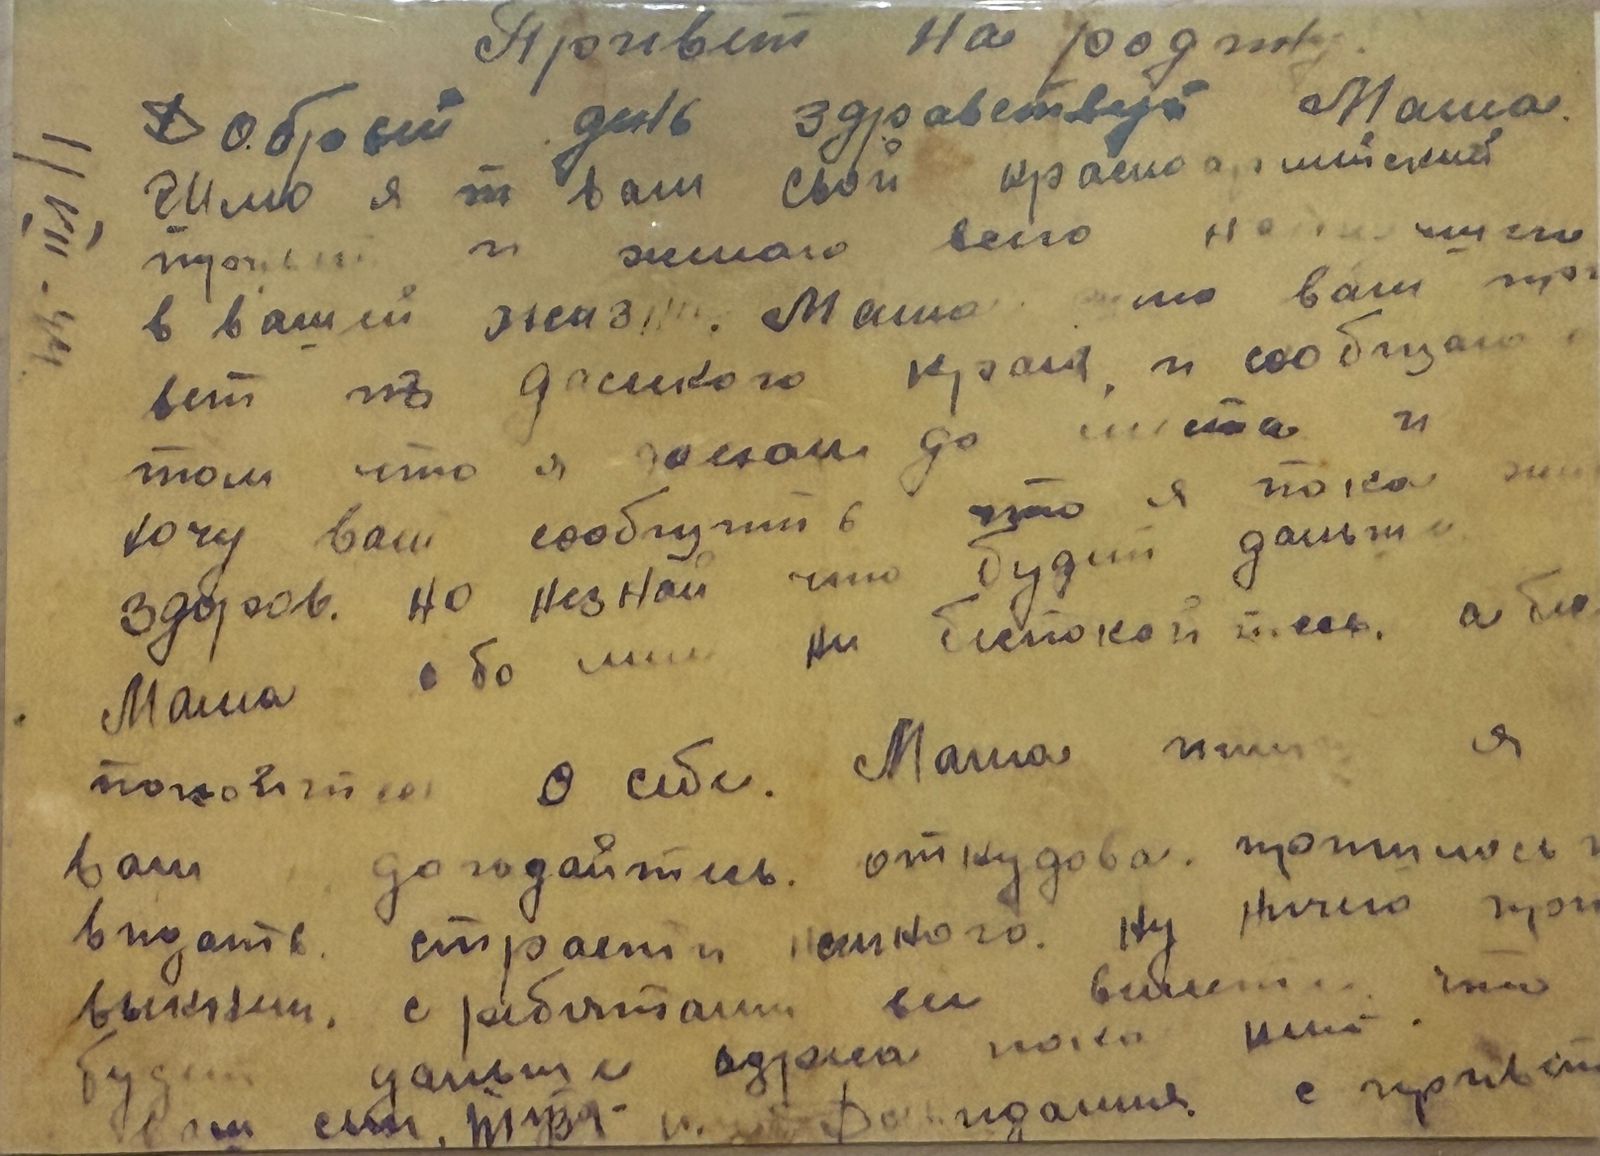 Привет на родину.
Добрый день здравствуй Мама.
Шлю я вам свой красноармейский
привет и желаю всего наилучшего
в вашей жизни. Мама шлю вам при
вет из далекого края, и сообщаю о
том что я доехал до места и
хочу вам сообщить что я пока жив
здоров. но незнай что будит дальше
Мама обо мне ни беспокойтесь. а бес
покойтесь о себе. Мама пишу я
вам догодайтесь. откудова. пришлось
видать. страсти немного. ну ничего при
выкнем. с ребятами все вместе. что
будет дальше пока нет.
ваш сын. Досвидания. с приветом
11/III-44